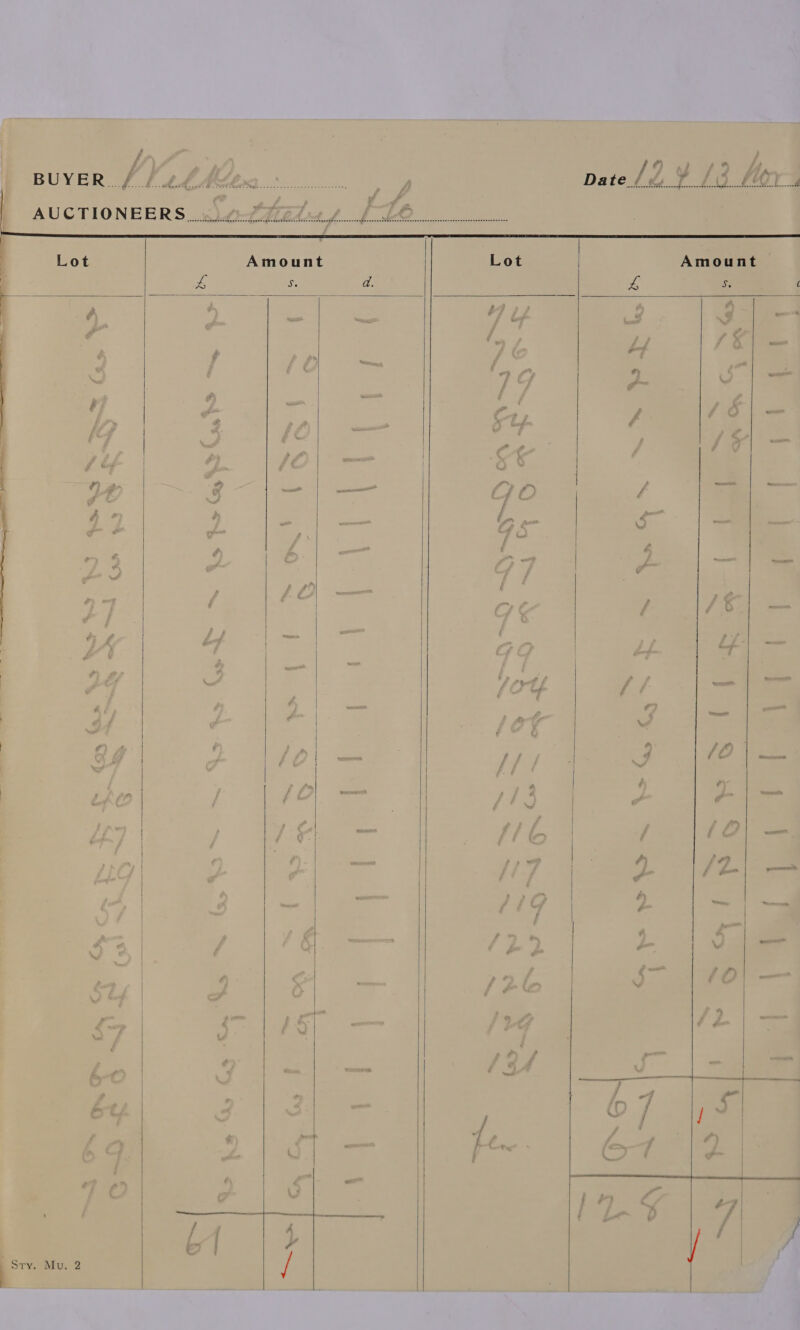 BUYER Withers Date 12 & 13 Nov
AUCTIONEERS Sotheby & Co
Lot Amount Lot Amount
£ s. d. £ s.
2 2 - - 74 3 3 -
3 1 10 - 76 4 18 -
7 2 - - 79 2 5 -
3 10 - 84 1 18 -
14 2 10 - 88 1 18 -
20 3 - - 90 1 - -
22 2 - - 95 5 - -
23 2 6 - 97 2 - -
27 1 10 - 98 1 18 -
28 4 - - 99 4 4 -
29 3 - - 104 11 - -
31 2 2 - 108 3 - -
39 2 10 - 111 3 10 -
40 1 10 - 113 2 2 -
47 1 18 - 116 1 10 -
49 2 2 - 117 2 12 -
51 3 - - 119 2 - -
53 1 18 - 122 2 5 -
54 2 8 - 126 5 10 -
57 5 15 - 129 12 -
60 3 - - 131 5 - -
64 3 3 - 67 5
69 2 5 - 61 2
70 2 5 - 128 7
61 2
Sry. Mu. 2